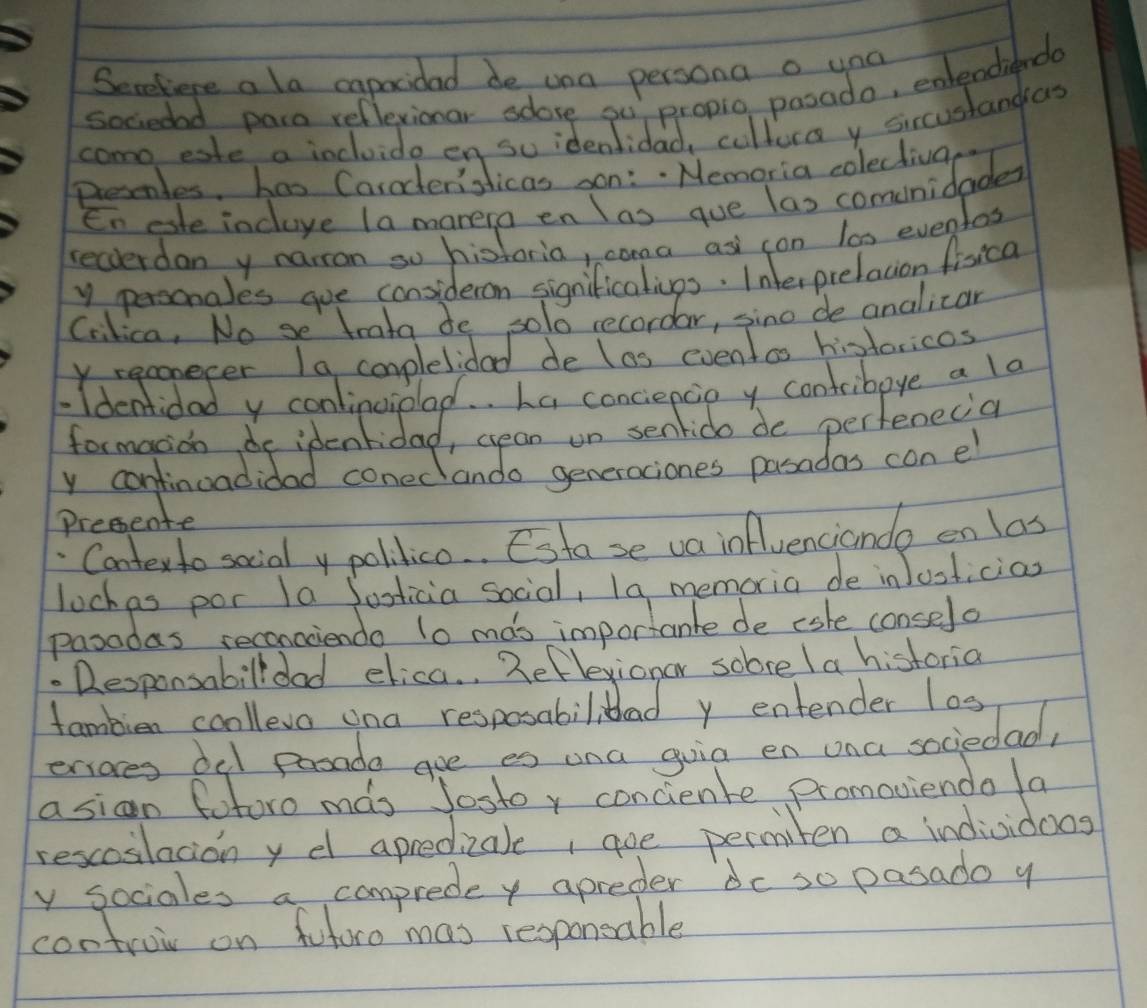 Serefiere a la capacidad de una persona o una
sociedad para reflexionar sobre su propio pasado, entendiendo
como este a incluido en su identidad, cultura y sircustancias
presentes. has Caracteristicas son: · Memoria colectiva..
En este incluye la manera en las que las comunidades
recuerdan y narran su historia, coma asi con los eventos
y personales que consideran significativos. Interpretacion fisica
Critica, No se trata de solo recordar, sino de analizar
y reconecer la complesidad de las eventos historicos
- Identidad y continuidad.. ha conciencia y contriboye a la
formación de identidad, crean un sentido de pertenecia
y continuadidad conectando generaciones pasadas con el
presente
· Contexto social y politico.. Esta se va influenciando en las
luchas por la Justicia social, la memoria de injusticias
pasadas reconociendo lo más importante de este consejo
· Responsabilidad etica.. Reflexionar sobre la historia
tambien conlleva una resposabilidad y entender los
errores del pasado que es una guia en una sociedad,
asi an futuro más Josto y conciente promoviendo la
rescosilación y el apredizaje, que permiten a individuos
y sociales a comprede y apreder de so pasado y
contruir un futuro mas responsable